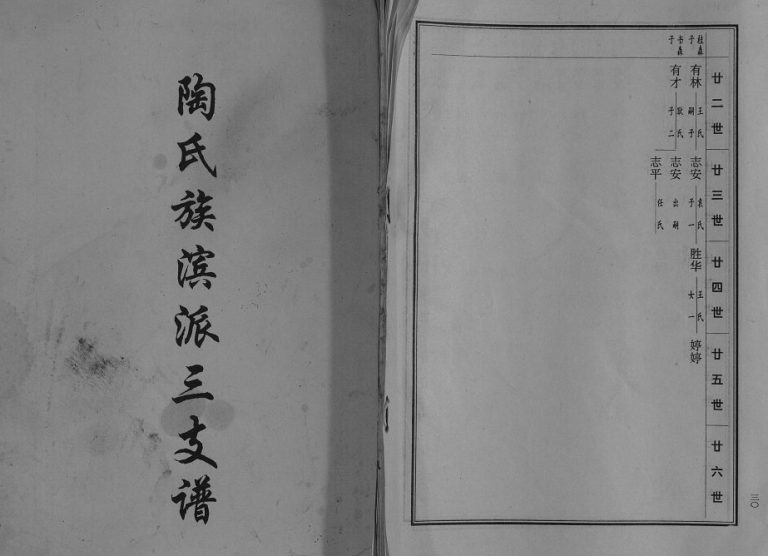 陶氏族滨派三支谱
廿二世
廿三世
廿四世
廿五世
廿六世
桂森子
书森子
有林
王氏
嗣子
志安
袁氏
子一
胜华
王氏
女一
婷婷
有才
耿氏
子二
志安
出嗣
志平
任氏
三〇